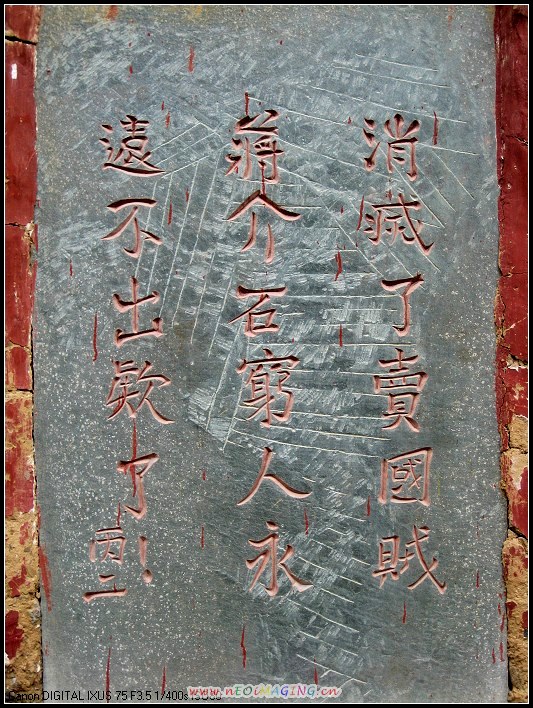 消滅了賣國賊
蔣介石窮人永
遠不出款了!
丙二
Canon DIGITAL IXUS 75 F3.5 1/400s
www.nEOiMAGiNG.cn